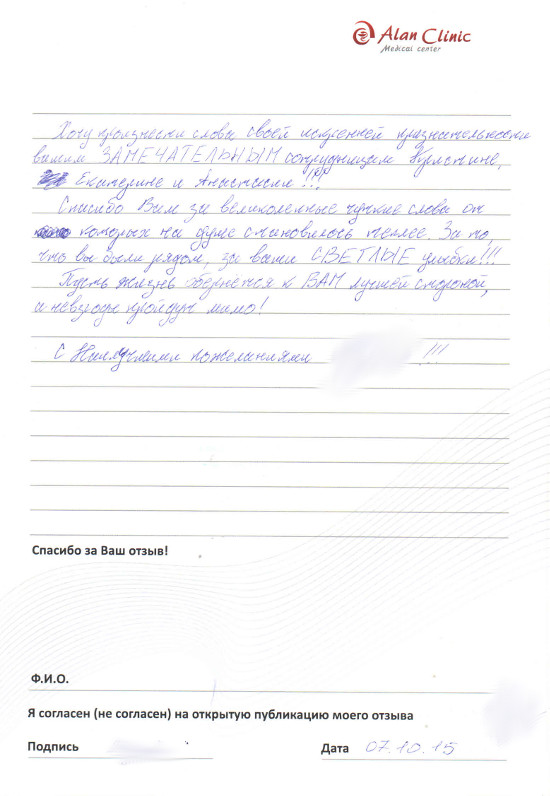 Alan Clinic
Medical center
Хочу произнести слова своей искренней признательности
вашим ЗАМЕЧАТЕЛЬНЫМ сотрудницам Кристине,
Екатерине и Анастасии !!!
Спасибо Вам за великолепные чуткие слова от
которых на душе становилось теплее. За то,
что вы были рядом, за ваши СВЕТЛЫЕ улыбки!!!
Пусть жизнь обернется к ВАМ лучшей стороной,
а невзгоды пройдут мимо!
С Наилучшими пожеланиями !!!
Спасибо за Ваш отзыв!
Ф.И.О.
Я согласен (не согласен) на открытую публикацию моего отзыва
Подпись Дата 07.10.15